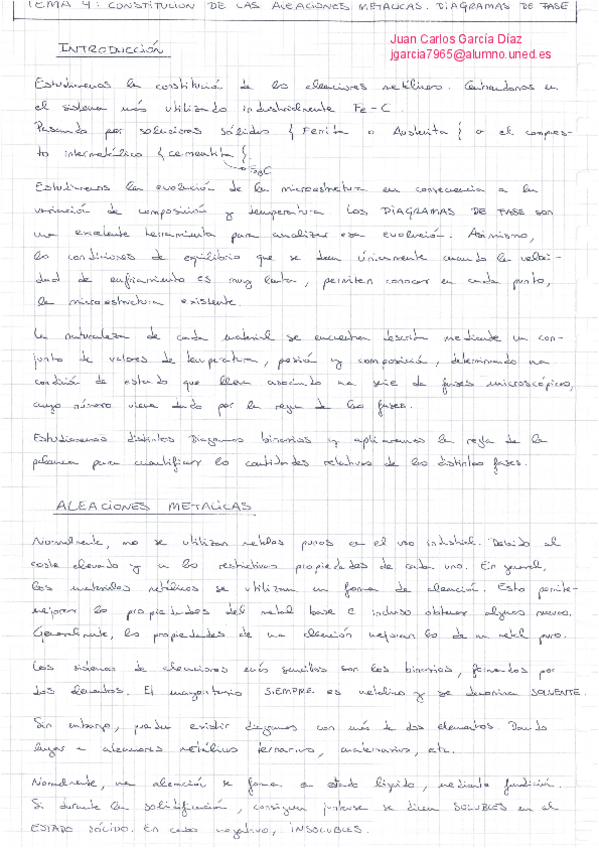 TEMA 4: CONSTITUCION DE LAS ALEACIONES METALICAS. DIAGRAMAS DE FASE
Juan Carlos García Díaz
jgarcia7965@alumno.uned.es
INTRODUCCIÓN
Estudiaremos la constitución de las aleaciones metálicas. Centrandonos en
el sistema más utilizado industrialmente Fe-C
Pasando por soluciones sólidas { Ferrita o Austenita } o el compues-
to intermetálico { cementita }.
Fe3C
Estudiaremos la evolución de la microestructura en consecuencia a la
variación de composición y temperatura. Los DIAGRAMAS DE FASE son
una excelente herramienta para analizar esa evolución. Asimismo,
las condiciones de equilibrio que se dan únicamente cuando la veloci-
dad de enfriamiento es muy lenta, permiten conocer en cada punto,
la microestructura existente.
La naturaleza de cada material se encuentra descrita mediante un con-
junto de valores de temperatura, presión y composición, determinando una
condición de estado que lleva asociado una serie de fases microscópicas,
cuyo número viene dado por la regla de las fases.
Estudiaremos distintos Diagramas binarios y aplicaremos la regla de la
palanca para cuantificar las cantidades relativas de las distintas fases.
ALEACIONES METALICAS
Normalmente, no se utilizan metales puros en el uso industrial. Debido al
coste elevado y a las restrictivas propiedades de cada uno. En general,
los materiales metálicos se utilizan en forma de aleación. Esto permite
mejorar las propiedades del metal base e incluso obtener algunas nuevas.
Generalmente, las propiedades de una aleación mejoran las de un metal puro.
Los sistemas de aleaciones más sencillos son los binarios, formados por
dos elementos. El mayoritario SIEMPRE es metálico y se denomina SOLVENTE.
Sin embargo, pueden existir diagramas con más de dos elementos. Dando
lugar a aleaciones metálicas ternarias, cuaternarias, etc.
Normalmente, una aleación se forma en estado líquido, mediante fundición.
Si durante la solidificación, consiguen juntarse se dicen SOLUBLES en el
ESTADO SÓLIDO. En caso negativo, INSOLUBLES.